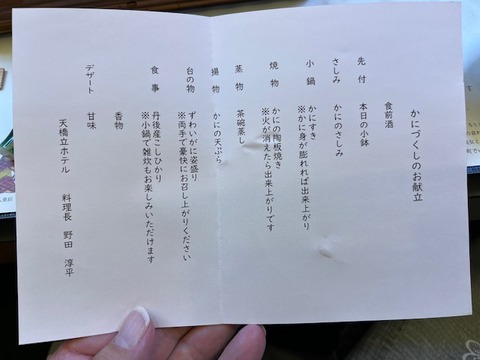 かにづくしのお献立
食前酒
先付 本日の小鉢
さしみ かにのさしみ
小鍋 かにすき
※かに身が膨れれば出来上がり
焼物 かにの陶板焼き
※火が消えたら出来上がりです
蒸物 茶碗蒸し
揚物 かにの天ぷら
台の物 ずわいがに姿盛り
※両手で豪快にお召し上がりください
食事 丹後産こしひかり
※小鍋で雑炊もお楽しみいただけます
香物
デザート 甘味
天橋立ホテル 料理長 野田 淳平